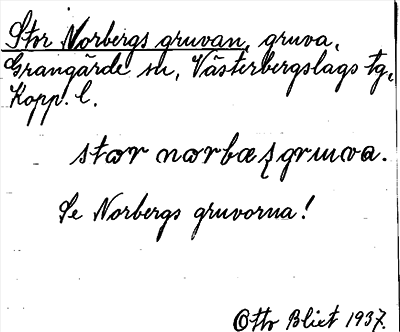 Stor Norbergs gruvan, gruva,
Grangärde sn, Västerbergslags tg,
Kopp. l.
stor norbæʃgruva.
Se Norbergs gruvorna!
Otto Blixt 1937.